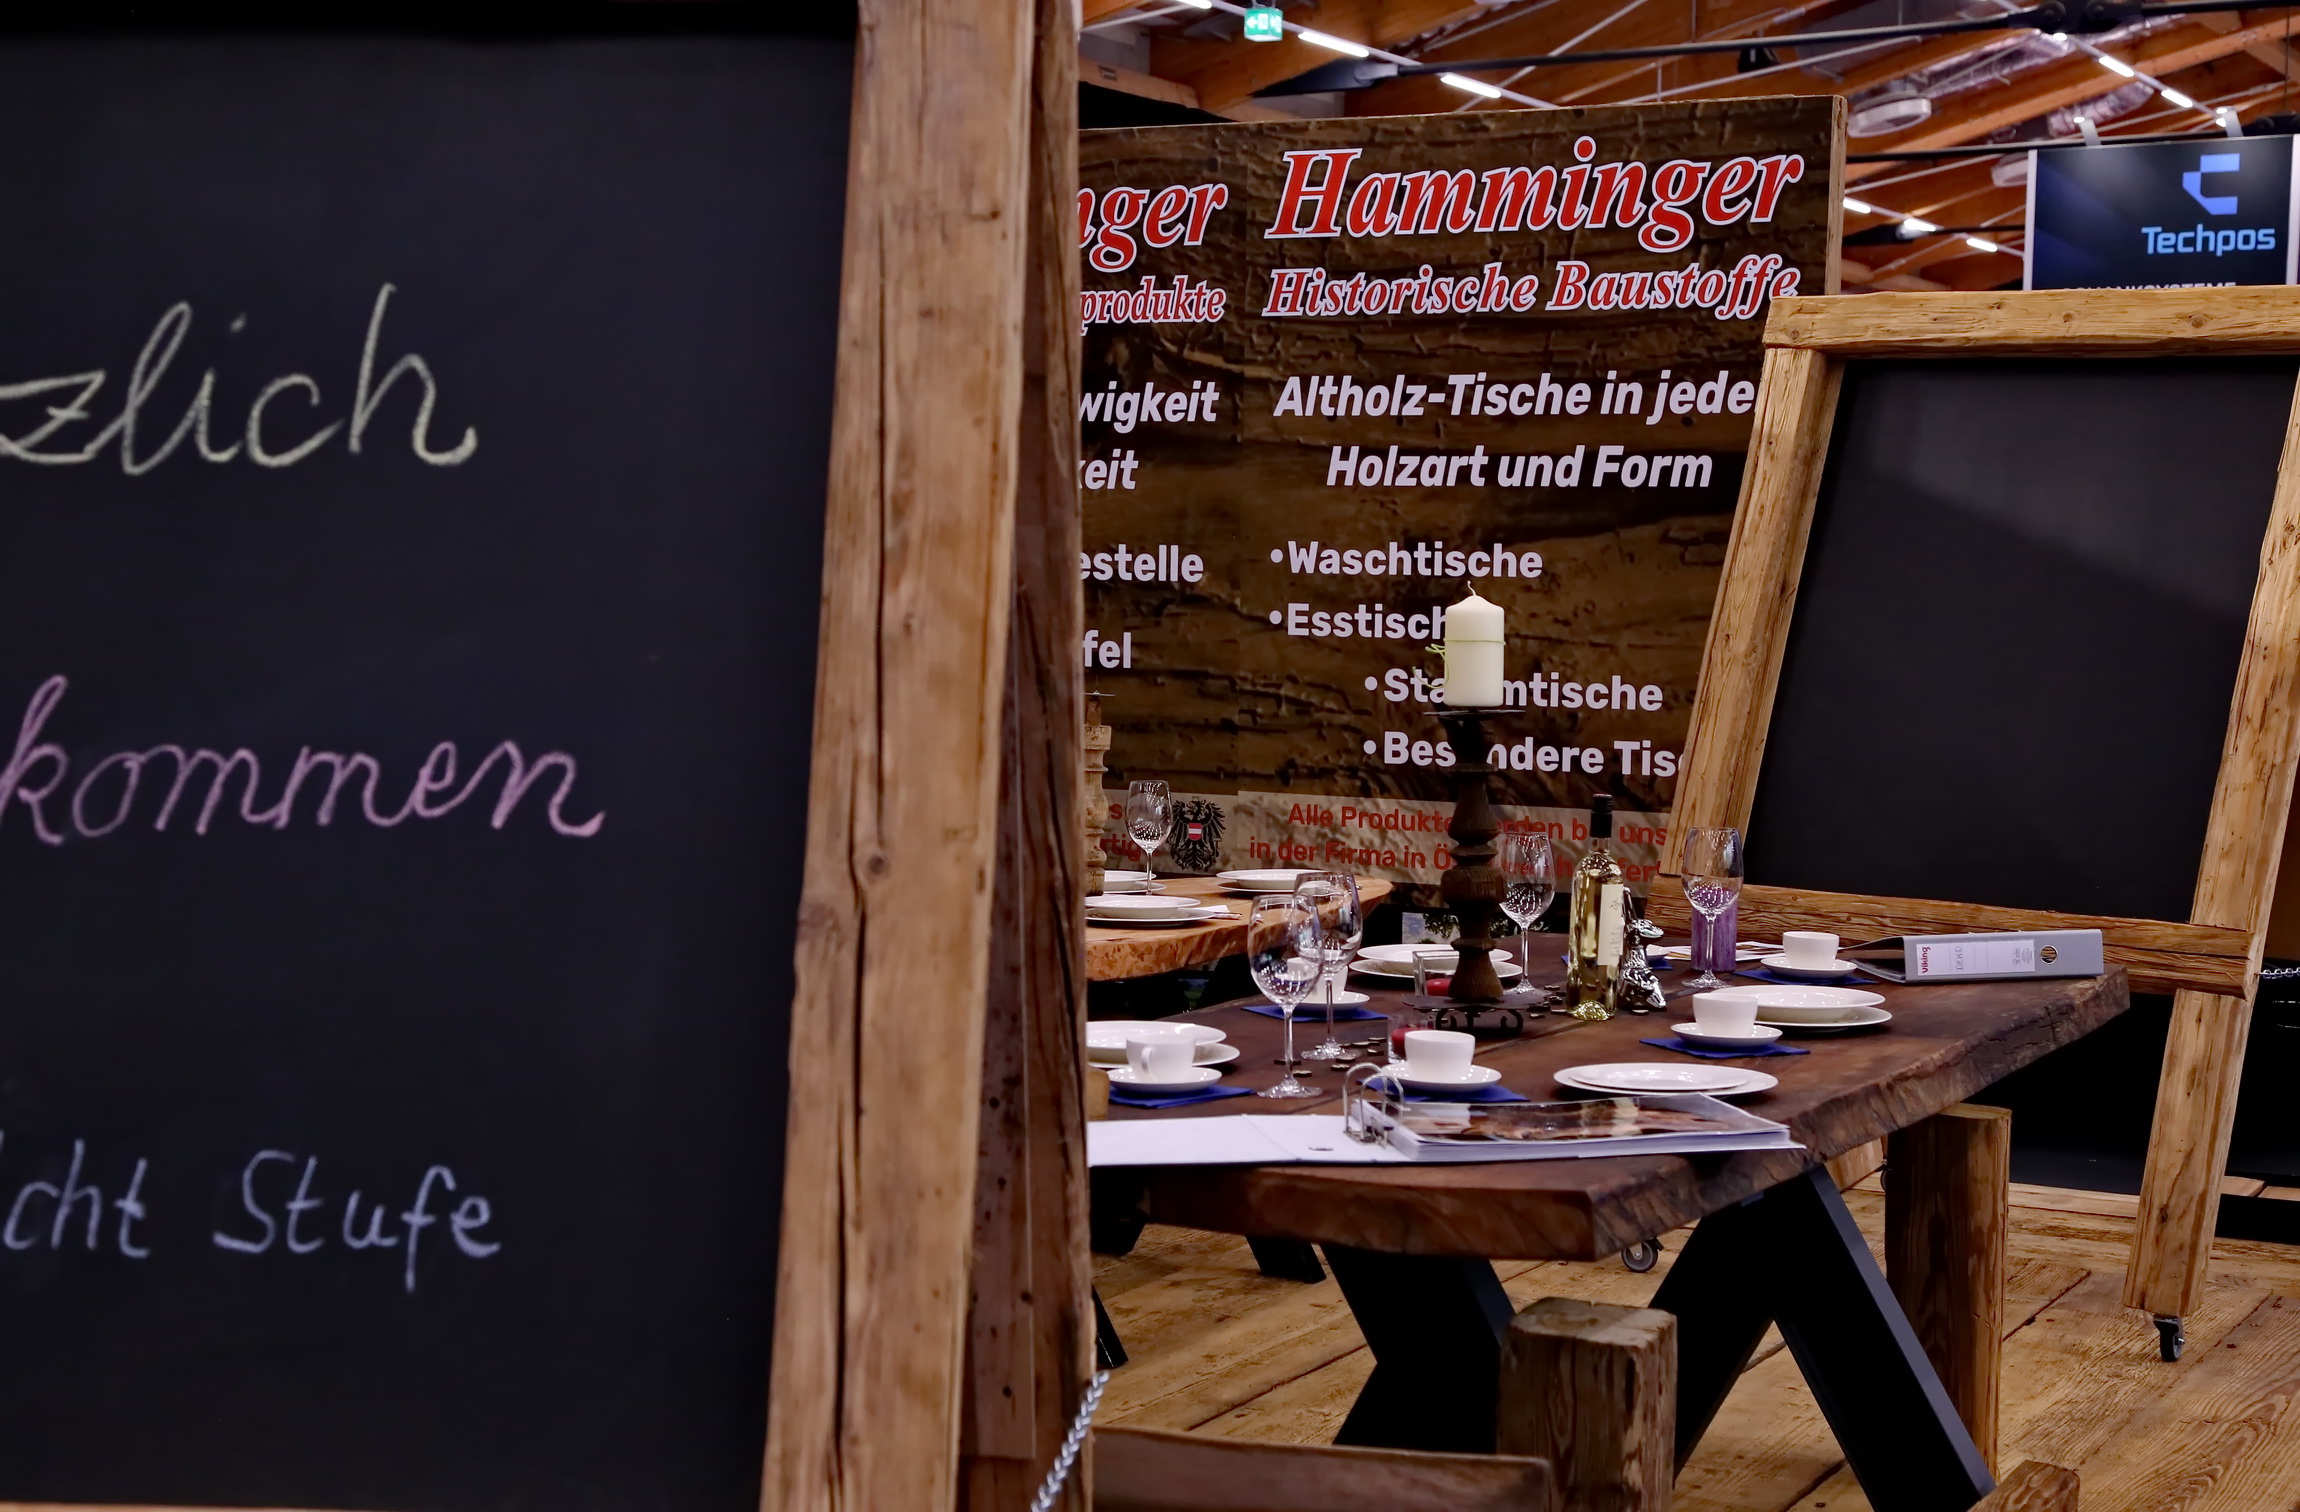 zlich
kommen
cht Stufe
nger
produkte
wigkeit
keit
estelle
fel
Hamminger
Historische Baustoffe
Altholz-Tische in jede
Holzart und Form
•Waschtische
•Esstisch
•Sta mtische
•Bes ndere Tis
Alle Produkte erden b uns
in der Firma in Ö
Techpos
viking